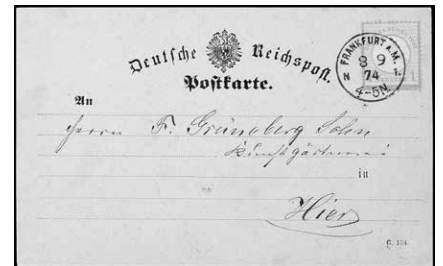 Deutsche Reichspost.
Postkarte.
FRANKFURT A.M.
8 9
N 74 1.
4-5N.
An
Herrn F. Grüneberg Sohn
Kunstgärtnerei
in
Hier
C. 154.